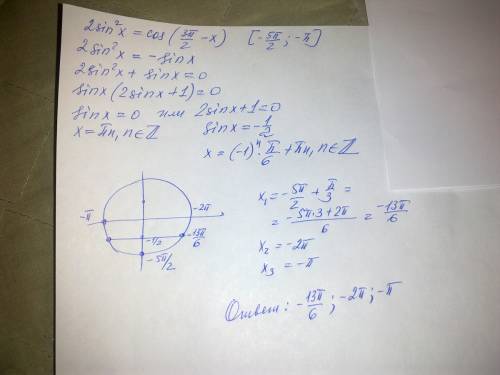 2sin²x = cos(3π/2 − x)   [−5π/2; −π]
2sin²x = −sinx
2sin²x + sinx = 0
sinx(2sinx+1) = 0
sinx = 0 или 2sinx+1=0
x = πn, n∈ℤ   sinx = −1/2
x = (−1)ⁿ · π/6 + πn, n∈ℤ
−π
−2π
−1/2
−13π/6
−5π/2
x₁ = −5π/2 + π/3 =
= (−5π·3+2π)/6 = −13π/6
x₂ = −2π
x₃ = −π
Ответ: −13π/6; −2π; −π